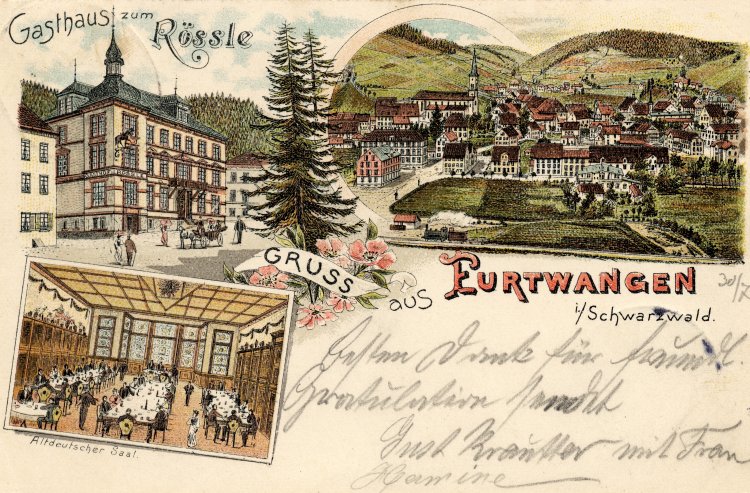 Gasthaus zum
Rössle
GRUSS
aus
FURTWANGEN
i/Schwarzwald.
30/7
Besten Dank für freundl.
Gratulation sendet
Gust Krautter mit Frau
Altdeutscher Saal.